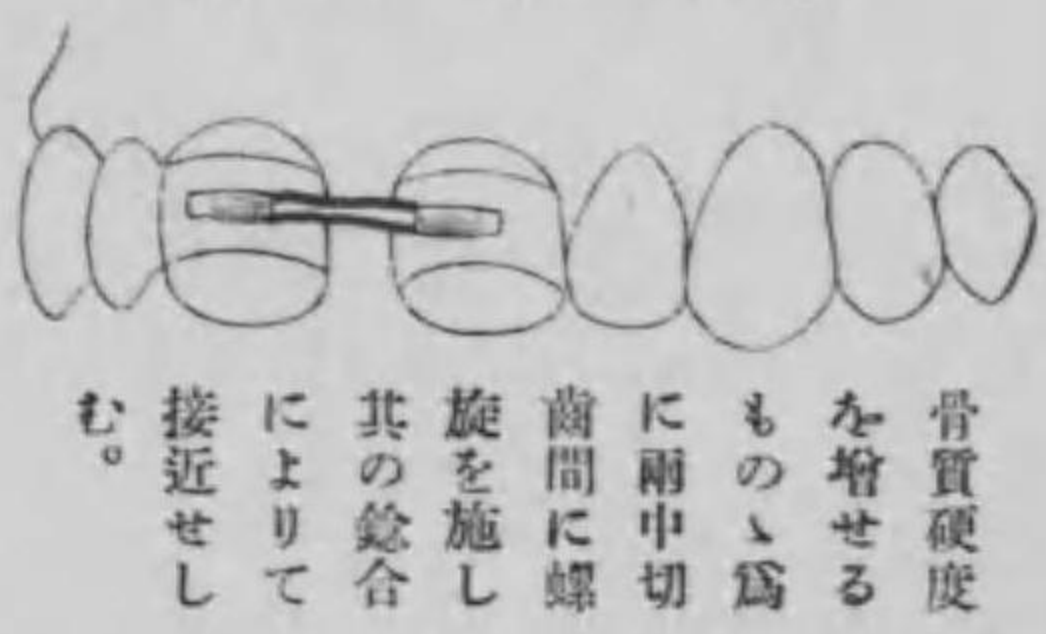 骨質硬度
を増せる
ものゝ爲
に兩中切
齒間に螺
旋を施し
其の鎹合
によりて
接近せし
む。